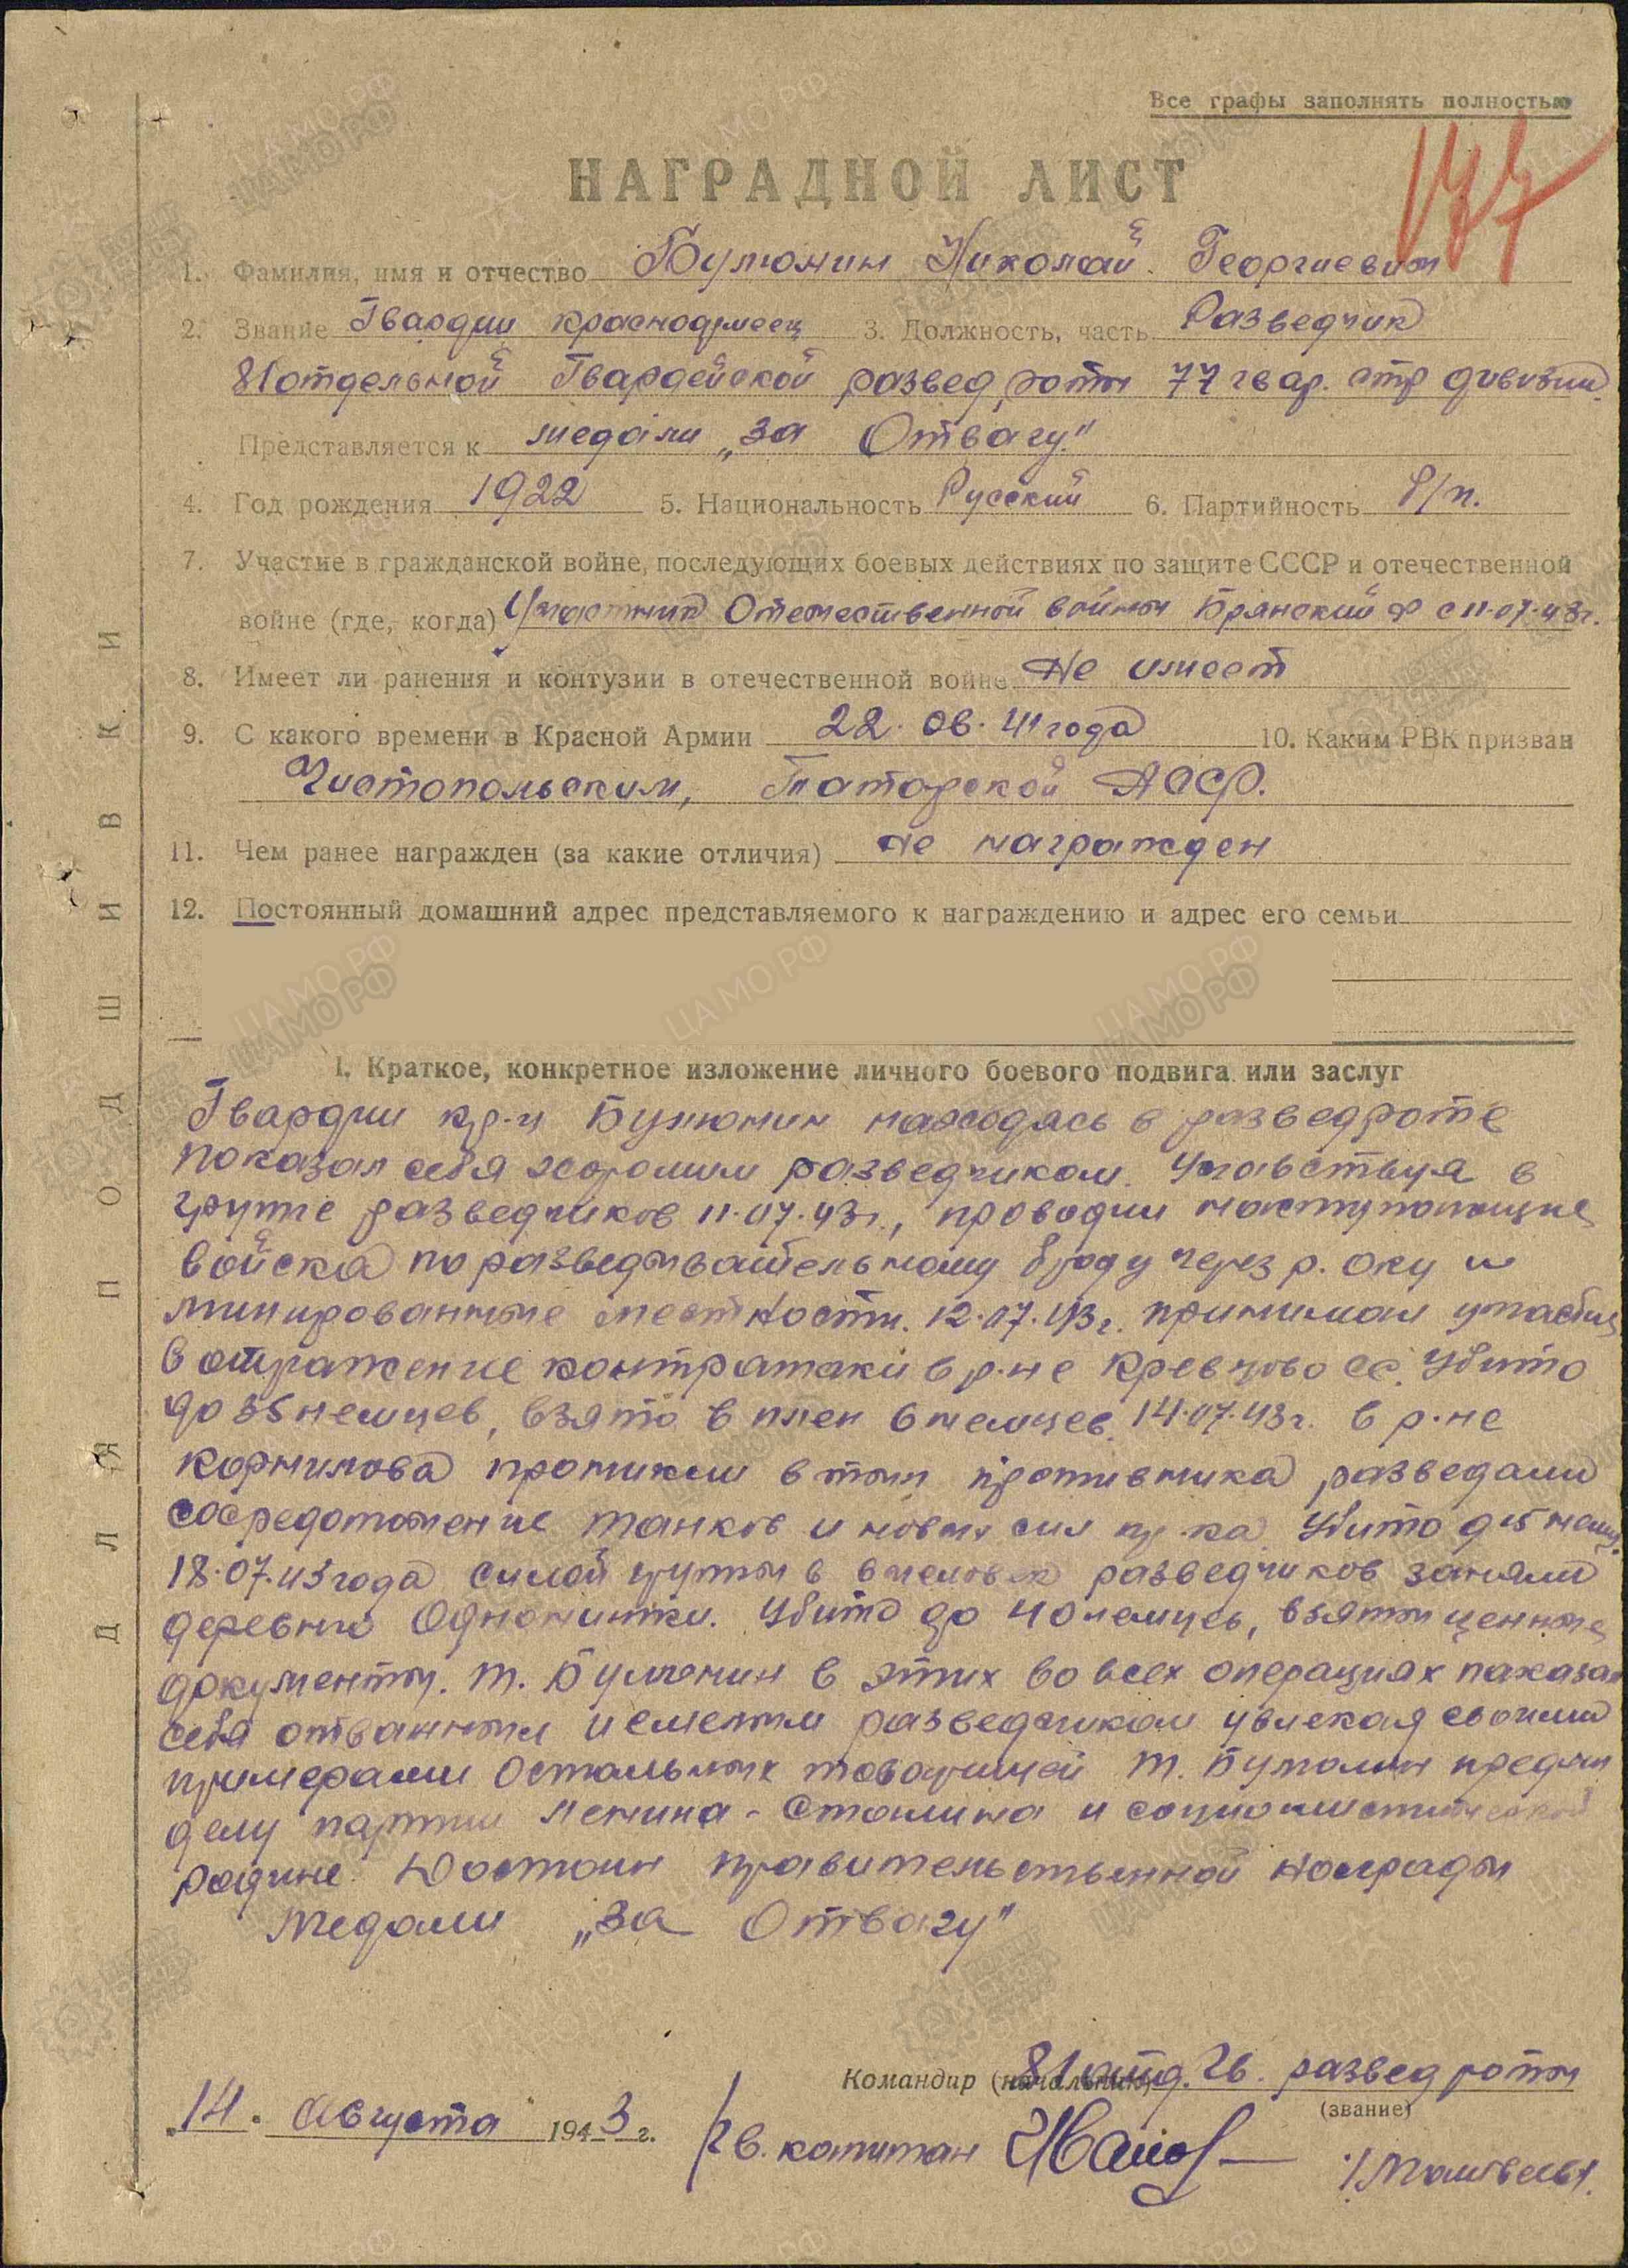 Все графы заполнять полностью
177
НАГРАДНОЙ ЛИСТ
1. Фамилия, имя и отчество Булюнин Николай Георгиевич
2. Звание Гвардии красноармеец 3. Должность, часть Разведчик
81 отдельной Гвардейской развед роты 77 гвар. стр дивизии
Представляется к медали „За Отвагу"
4. Год рождения 1922 5. Национальность Русский 6. Партийность б/п.
7. Участие в гражданской войне, последующих боевых действиях по защите СССР и отечественной
войне (где, когда) Участник Отечественной войны Брянский ф с 11.07.43г.
8. Имеет ли ранения и контузии в отечественной войне Не имеет
9. С какого времени в Красной Армии 22. 08. 41 года 10. Каким РВК призван
Чистопольским, Татарской АССР.
11. Чем ранее награжден (за какие отличия) не награжден
12. Постоянный домашний адрес представляемого к награждению и адрес его семьи
I. Краткое, конкретное изложение личного боевого подвига или заслуг
Гвардии кр-ц Булюнин находясь в разведроте
показал себя хорошим разведчиком. Учавствуя в
группе разведчиков 11.07.43г., проводил наступающие
войска по разведывательному броду через р. Оку и
минированные местности. 12.07.43г. принимал участие
в отражение контратаки в р-не Кревцово Убито
до 35 немцев, взято в плен 6 немцев. 14.07.43г. в р-не
Корнилова проникли в тыл противника разведали
сосредоточение танков и новых сил пр-ка. Убито 9
18.07.43 года силой группы в 8 человек разведчиков заняли
деревню Однолитки. Убито до 40 немцев, взяты ценные
документы. т. Булюнин в этих во всех операциях паказал
себя отважным и смелым разведчиком увлекая своими
примерами остальных товарищей т. Булюнин предан
делу партии Ленина - Сталина и социалистической
родине. Достоин правительственной награды
медали „За Отвагу"
Командир (начальник) 81 отд. гв. развед роты
(звание)
„14." августа 1943 г.
гв. капитан
ДЛЯ ПОДШИВКИ
ЦАМО РФ
ПАМЯТЬ НАРОДА